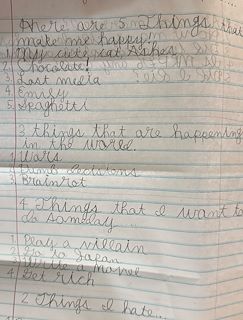 There are 5 Things that
make me happy!!
1 My cute cat Ashes
2 Chocolate!
3 Lost media
4 Emily
5 Spaghetti
3 things that are happening
in the world.
1 Wars
2 Dumb Decisions
3 Brainrot
4 Things that I want to
do someday...
1 Play a villain
2 Go to Japan
3 Write a Novel
4 Get rich
2 Things I hate...